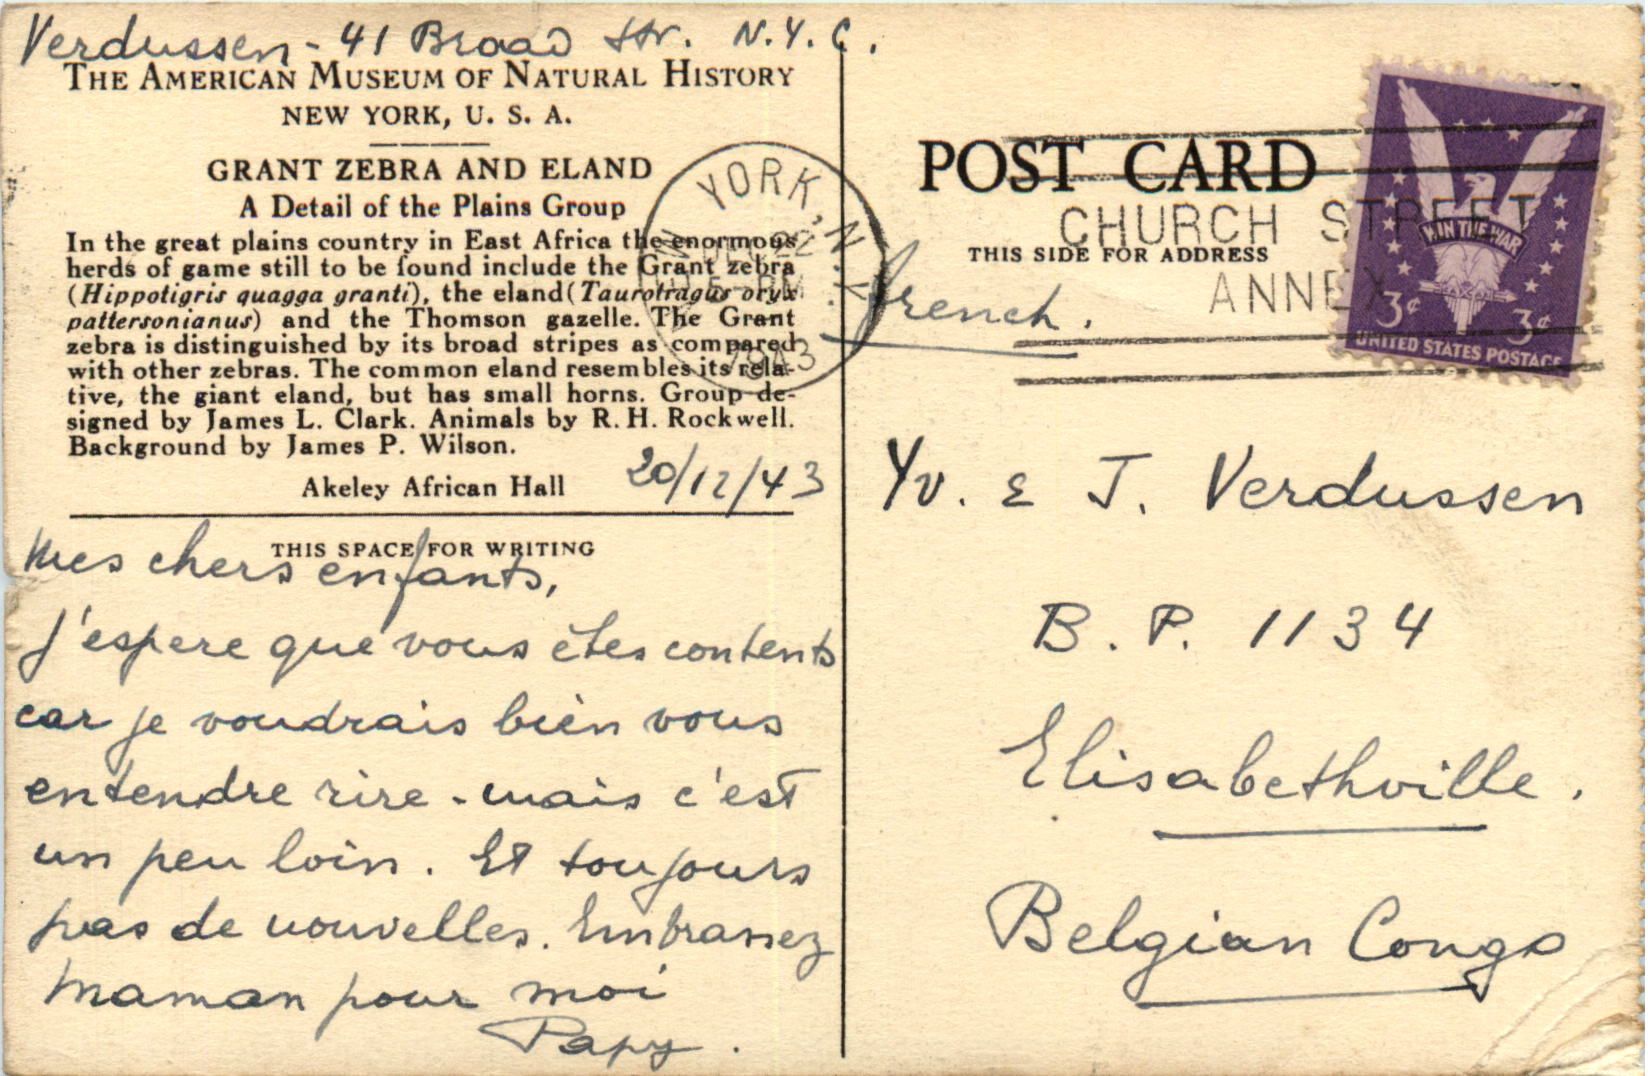 Verdussen - 41 Broad Str. N.Y.C.
THE AMERICAN MUSEUM OF NATURAL HISTORY
NEW YORK, U. S. A.
GRANT ZEBRA AND ELAND
A Detail of the Plains Group
In the great plains country in East Africa the enormous
herds of game still to be found include the Grant zebra
(Hippotigris quagga granti), the eland (Taurotragus oryx
pattersonianus) and the Thomson gazelle. The Grant
zebra is distinguished by its broad stripes as compared
with other zebras. The common eland resembles its rela-
tive, the giant eland, but has small horns. Group de-
signed by James L. Clark. Animals by R. H. Rockwell.
Background by James P. Wilson.
Akeley African Hall
20/12/43
THIS SPACE FOR WRITING
Mes chers enfants,
J'espere que vous êtes contents
car je voudrais bien vous
entendre rire - mais c'est
un peu loin. Et toujours
pas de nouvelles. Embrassez
maman pour moi
Papy.
YORK, N.Y.
22
PM
1943
POST CARD
CHURCH STREET
ANNEX
THIS SIDE FOR ADDRESS
french.
WIN THE WAR
3¢ 3¢
UNITED STATES POSTAGE
Yv. & J. Verdussen
B. P. 1134
Elisabethville.
Belgian Congo